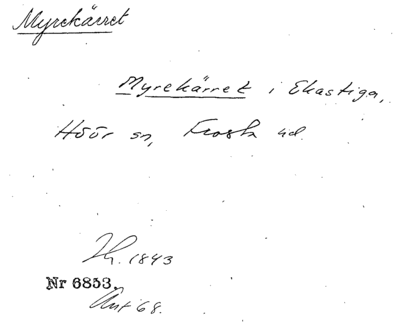 Myrekärret
Myrekärret i Ekastiga,
Höör sn, Frosta hd.
1843
Nr 6853.